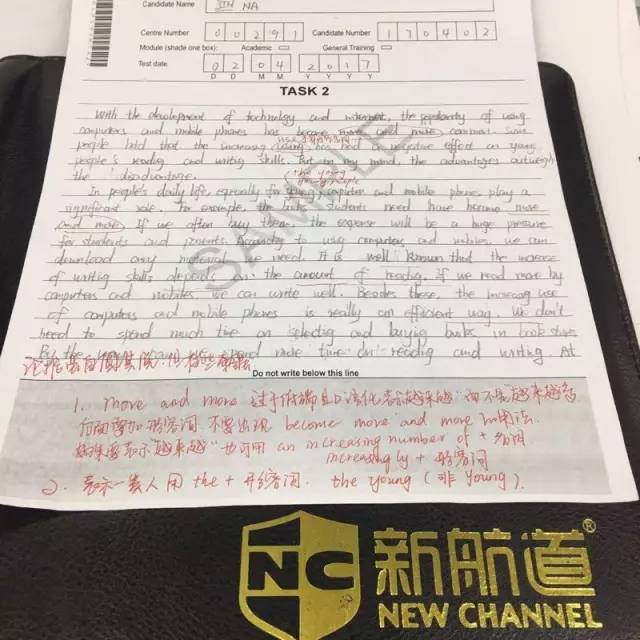 Candidate Name JIN NA
Centre Number 0 0 2 9 1 Candidate Number 1 7 0 4 0 2
Module (shade one box): Academic General Training
Test date 0 2 0 4 2 0 1 7
D D M M Y Y Y Y
TASK 2
With the development of technology and internet, the popularity of using
computers and mobile phones has become more and more common. Some
people hold that the increasing using has negative effect on young
people's reading and writing skills. But in my mind, the advantages outweigh
the disadvantage.
the young
In people's daily life, especially for computers and mobile phones play a
significant role. For example, the students need have become more
and more. If we often buy them, the expense will be a huge pressure
for students and parents. According to using computers and mobiles, we can
download any material we need. It is well known that the increase
of writing skills depends on the amount of reading. If we read more by
computers and mobiles, we can write well. Besides these, the increasing use
of computers and mobile phones is really an efficient way. We don't
need to spend much time on selecting and buying books in book stores
spend more time on reading and writing. At
Do not write below this line
1. more and more 过于 口语化 表示越来越 而不是 越来越多
后面要加形容词 不要出现 become more and more 的用法
表示"越来越" 也可用 an increasing number of + 名词
increasingly + 形容词
2. 表示一类人用 the + 形容词. the young (非 young).
SAMPLE
NC 新航道®
NEW CHANNEL